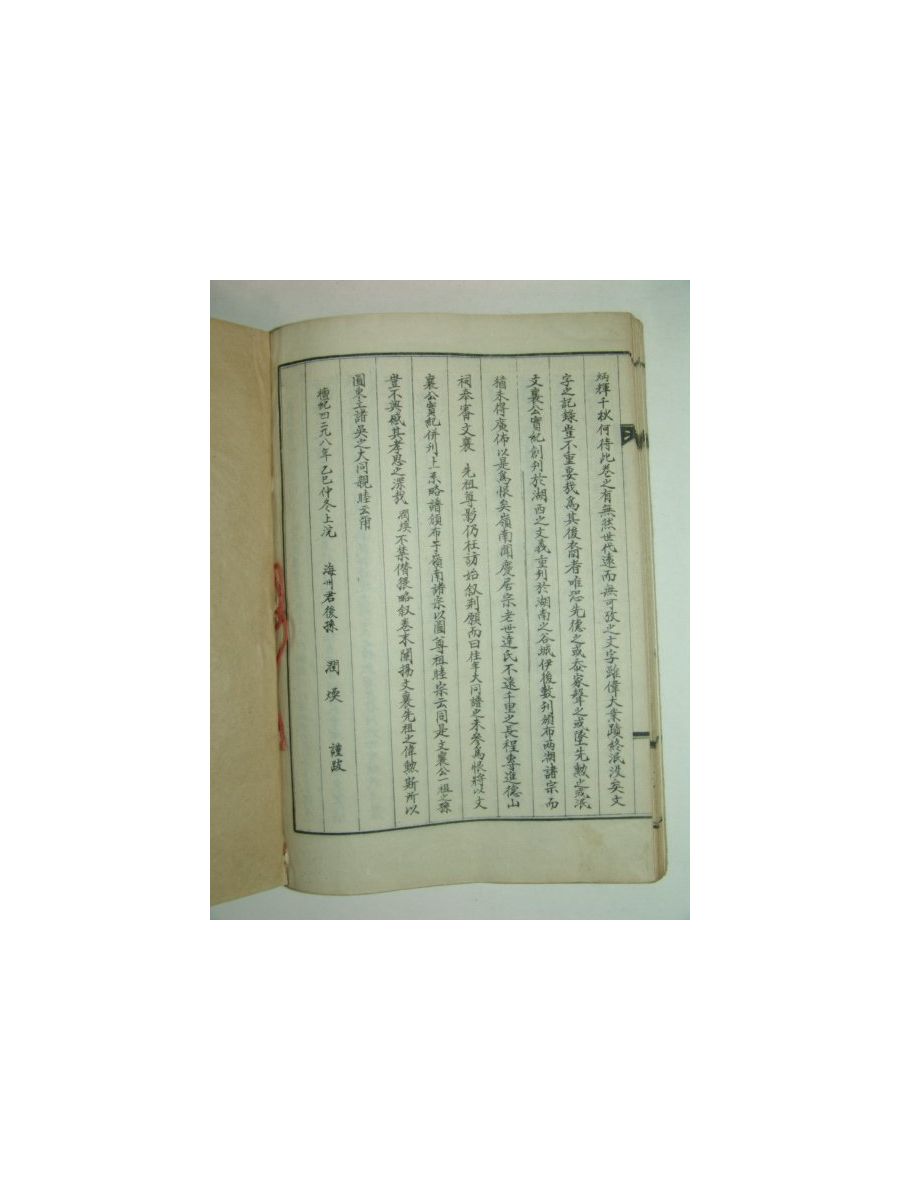 炳輝千秋何待此卷之有無然世代遠而無可攷之文字雖偉大業蹟終泯没矣文
字之記錄豈不重要哉爲其後裔者唯恐先德之或忝家聲之或墜先勲之或泯
文襄公實紀創刊於湖西之文義重刊於湖南之谷城伊後數刊頒布两湖諸宗而
猶未得廣佈以是爲恨矣嶺南聞慶居宗老世達氏不遠千里之長程專進德山
祠奉審文襄 先祖尊影仍枉訪始叙刋願而曰往年大同譜之未參爲恨將以文
襄公實紀併刋上系略譜頒布于嶺南諸宗以圖尊祖睦宗云同是文襄公一祖之孫
豈不興感其孝思之深哉 潤煐不禁僭猥略叙卷末闡揚文襄先祖之偉勲斯所以
圖東土諸吳之大同親睦云爾
檀紀四二九八年乙巳仲冬上浣 海州君後孫 潤煐 謹跋